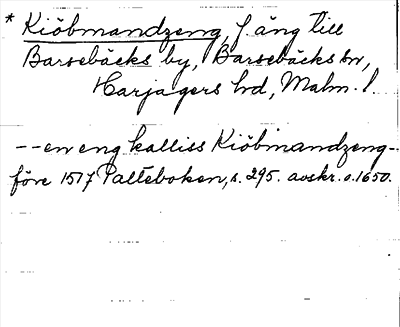 * Kiöbmandzeng, f. äng till
Barsebäcks by, Barsebäcks sn,
Harjagers hd, Malm. l.
--en eng kalliss Kiöbmandzeng--
före 1517 Palteboken, s. 295. avskr. o. 1650.